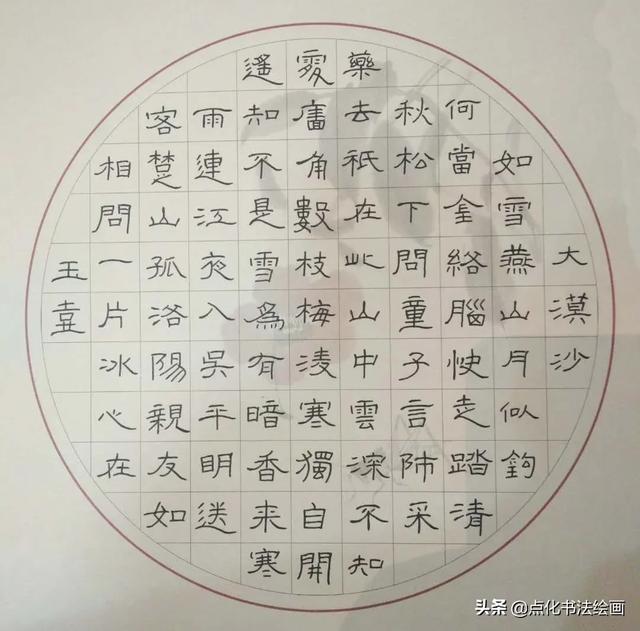 大漠沙
如雪燕山月似鉤
何當金絡腦快走踏清
秋松下問童子言師采
藥去祇在此山中雲深不知
處牆角數枝梅凌寒獨自開
遙知不是雪爲有暗香来寒
雨連江夜入吳平明送
客楚山孤洛陽親友如
相問一片冰心在
玉壺
头条 @点化书法绘画